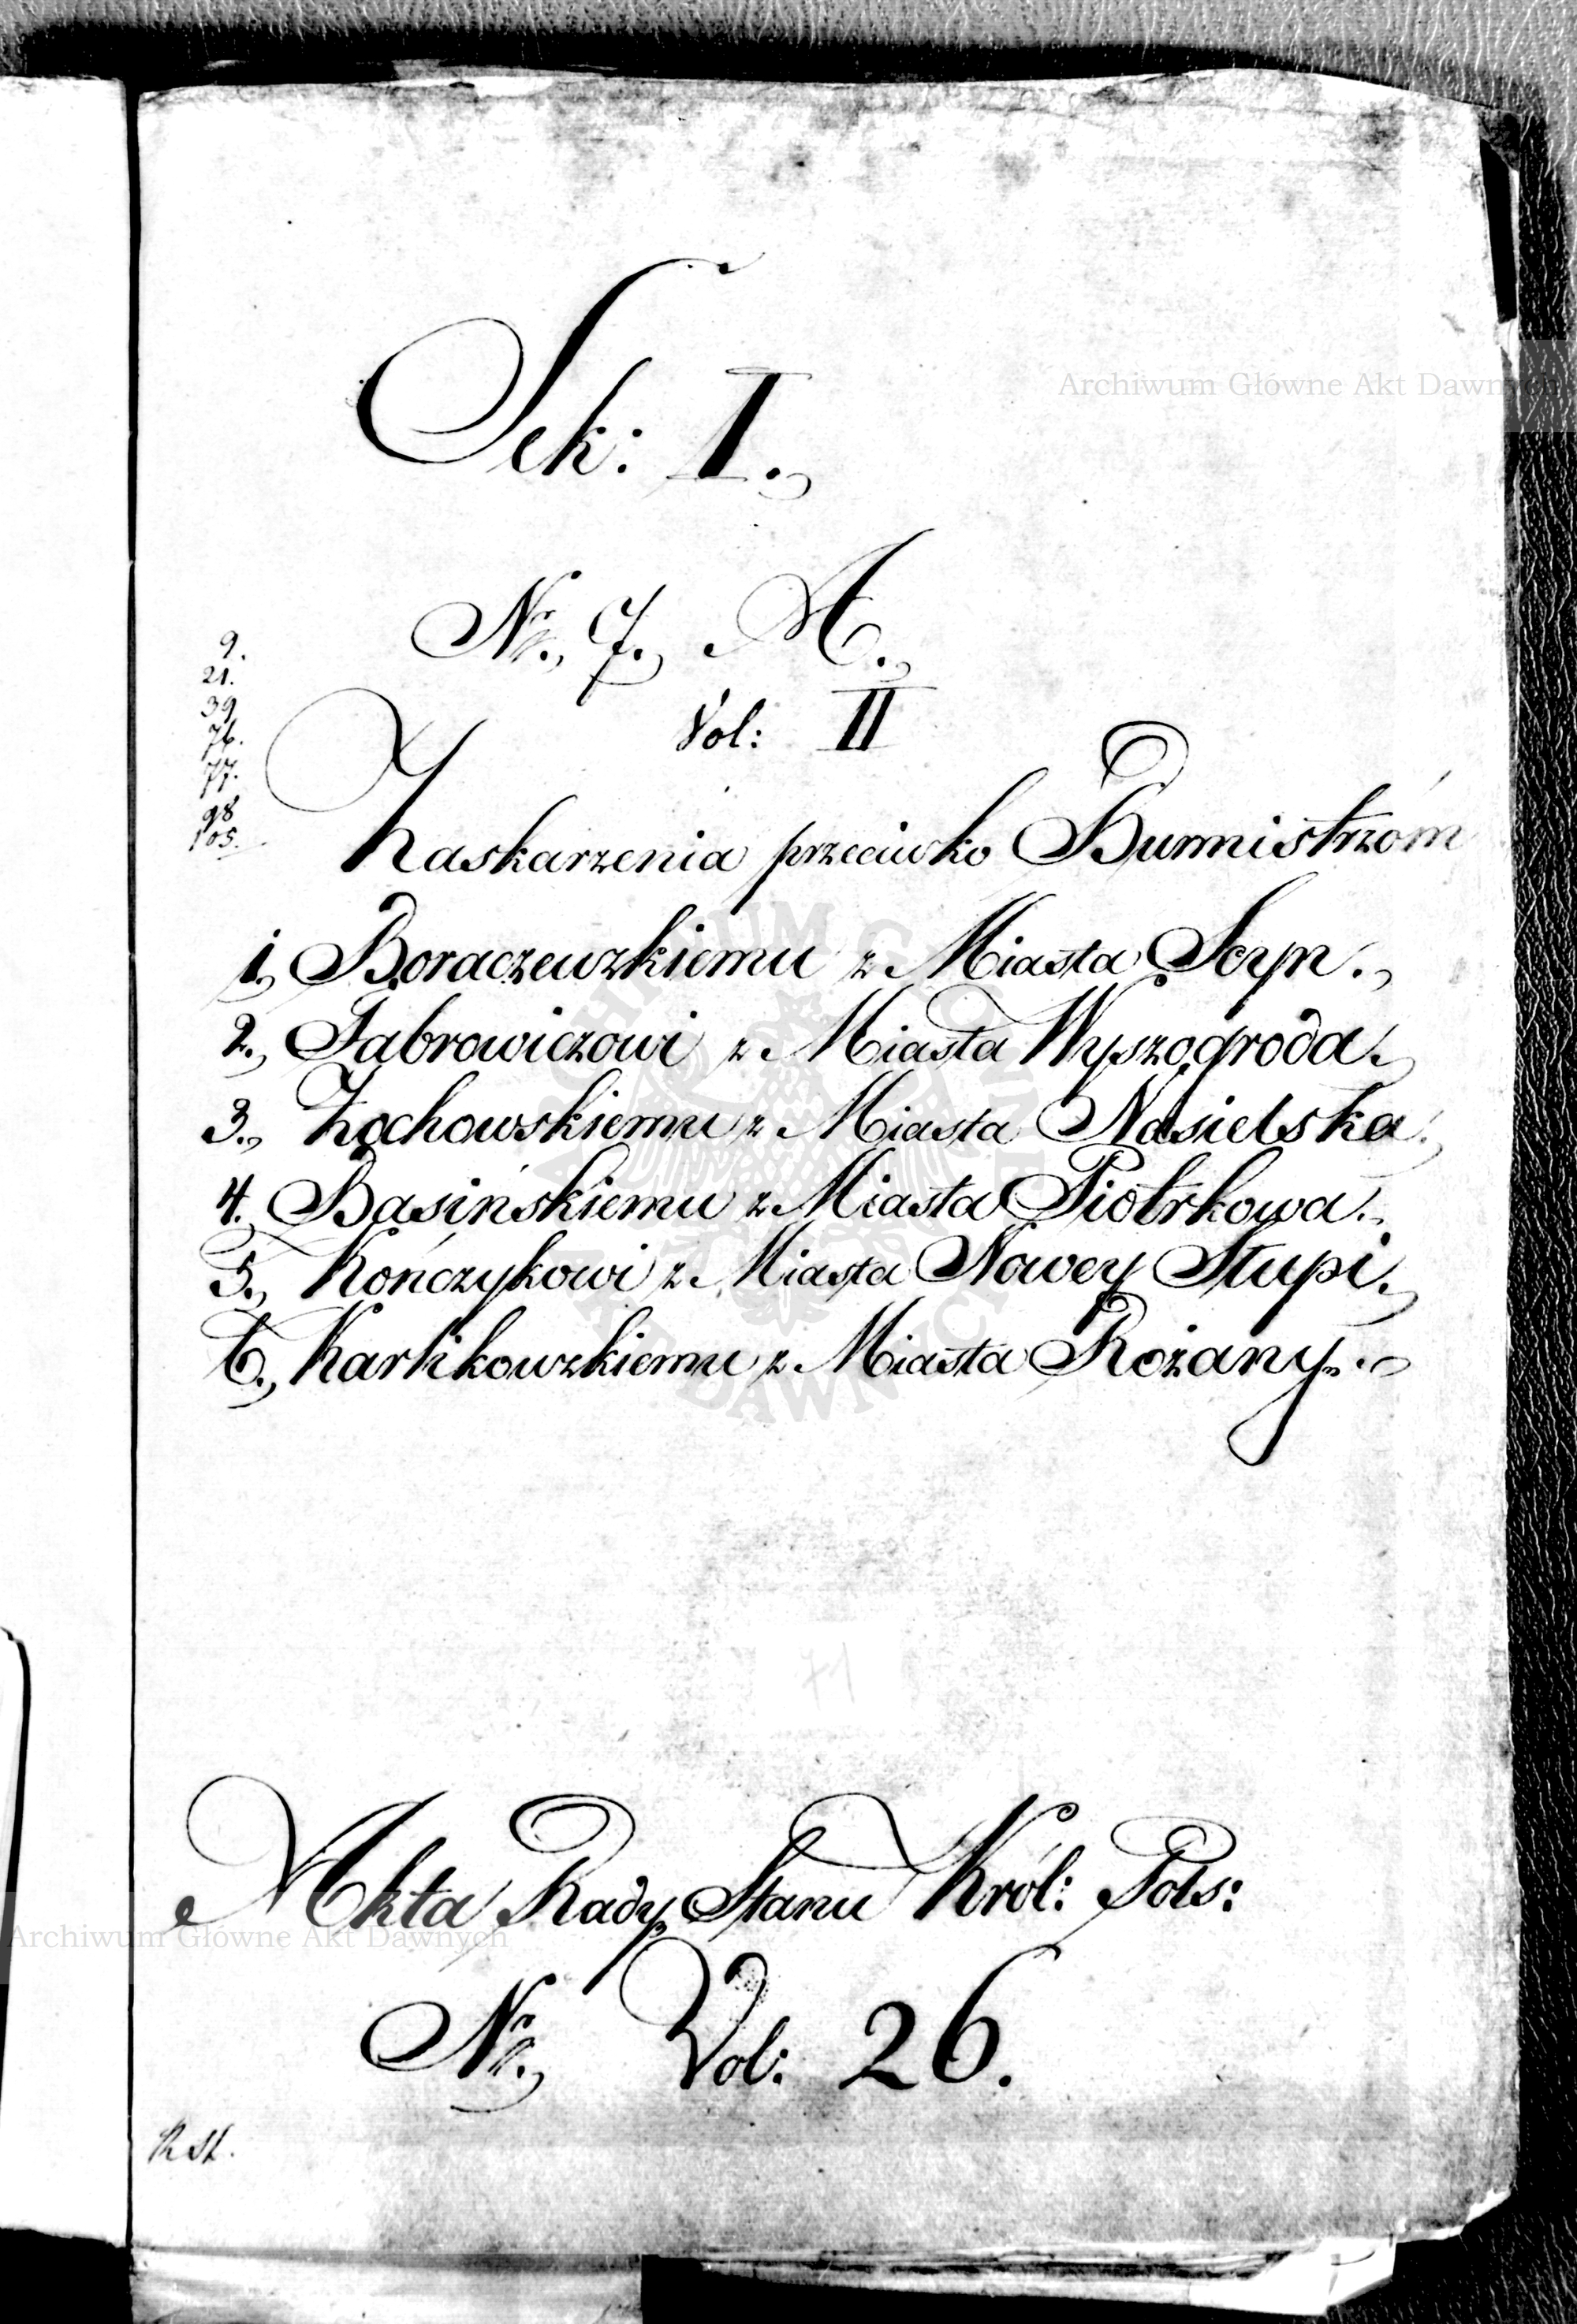 Sek: I.
No. 7. A.
Vol: II
9.
21.
39
76.
77.
98
105.
Zaskarzenia przeciwko Burmistrzóm
1. Boraczewzkiemu z Miasta Scyn.
2. Jabrowiczowi z Miasta Wyszogroda.
3. Żochowskiemu z Miasta Nasielska.
4. Basińskiemu z Miasta Piotrkowa.
5. Kończykowi z Miasta Nowey Słupi.
6. Karlikowzkiemu z Miasta Rożany.
Akta Rady Stanu Król: Pols:
No. Vol: 26.
R St.
Archiwum Główne Akt Dawnych
Archiwum Główne Akt Dawnych
ARCHIWUM GŁÓWNE AKT DAWNYCH